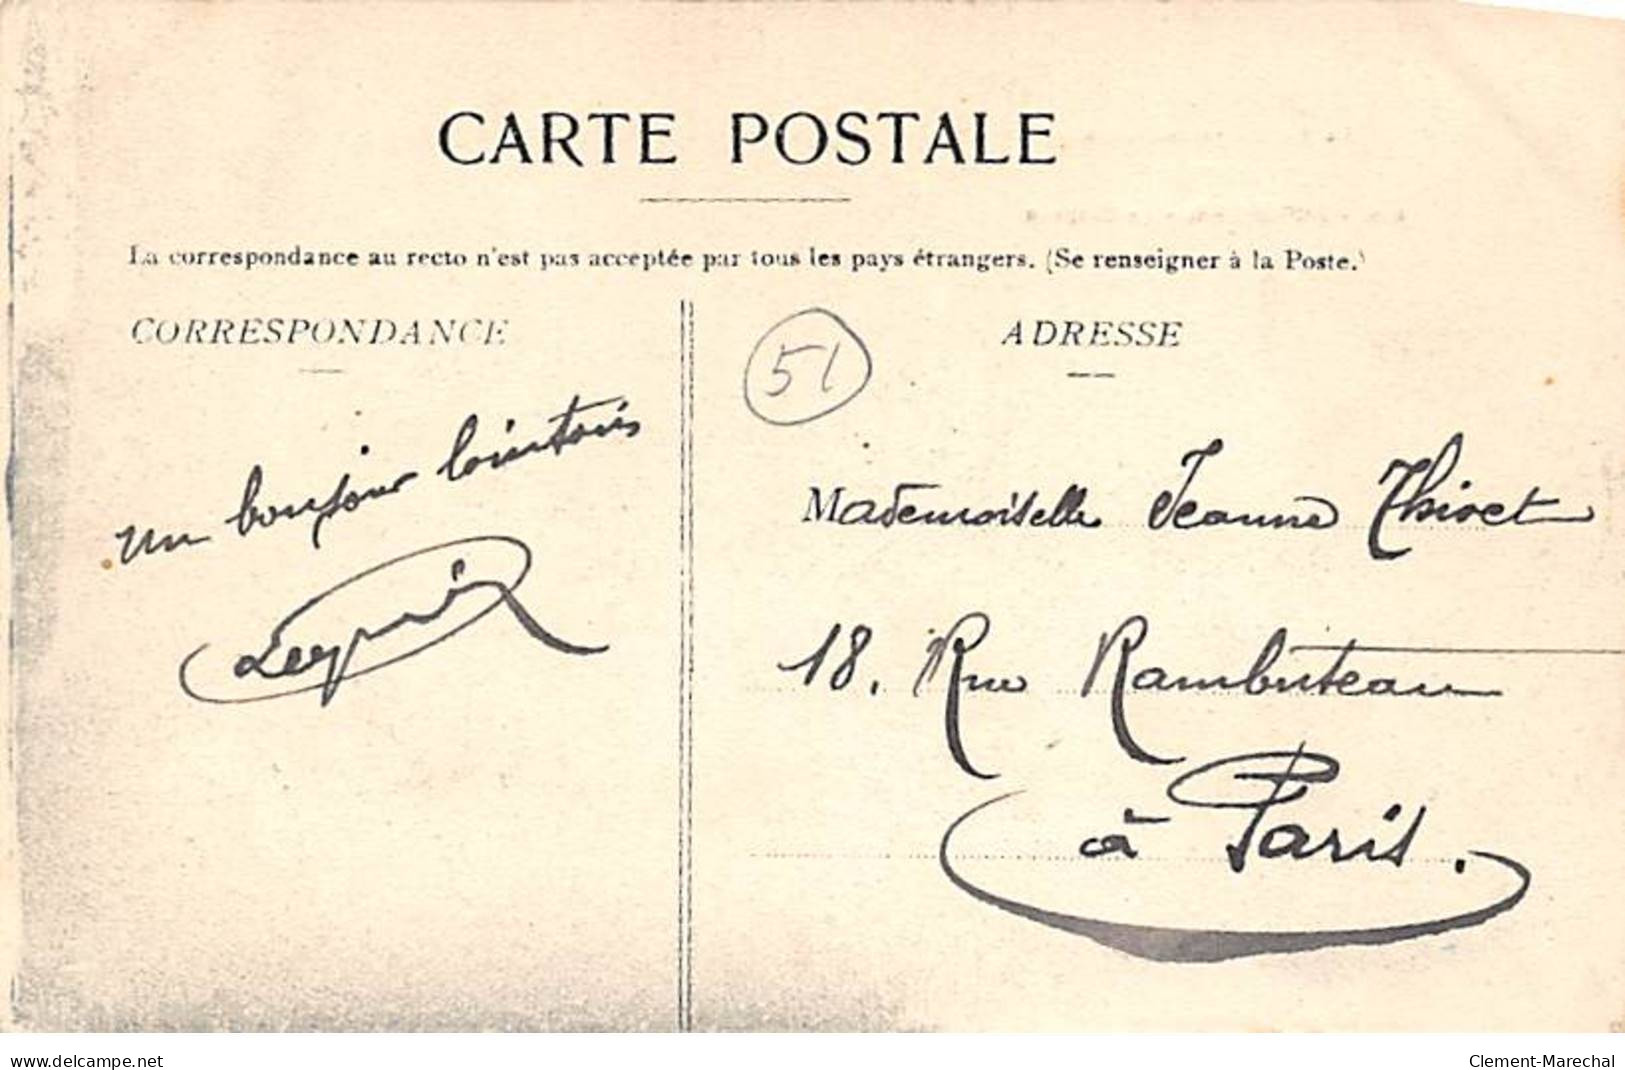 CARTE POSTALE
La correspondance au recto n'est pas acceptée par tous les pays étrangers. (Se renseigner à la Poste.)
CORRESPONDANCE
un bonjour lointain
51
ADRESSE
Mademoiselle Jeanne Thivet
18. Rue Rambuteau
à Paris.
www.delcampe.net
Clement-Marechal